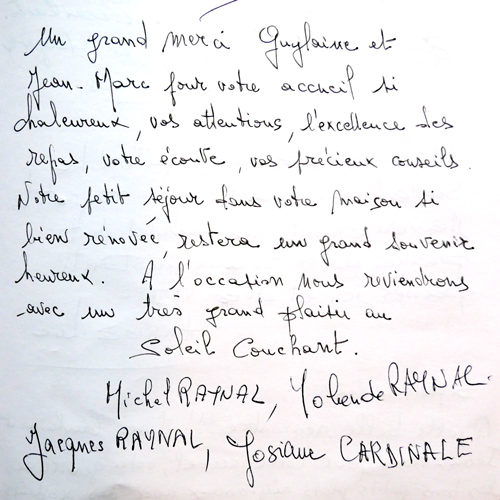 Un grand merci Guylaine et
Jean-Marc pour votre accueil si
chaleureux, vos attentions, l'excellence des
repas, votre écoute, vos précieux conseils.
Notre petit séjour dans votre maison si
bien rénovée, restera un grand souvenir
heureux. A l'occasion nous reviendrons
avec un très grand plaisir au
Soleil Couchant.
Michel RAYNAL, Yolande RAYNAL.
Jacques RAYNAL, Josiane CARDINALE